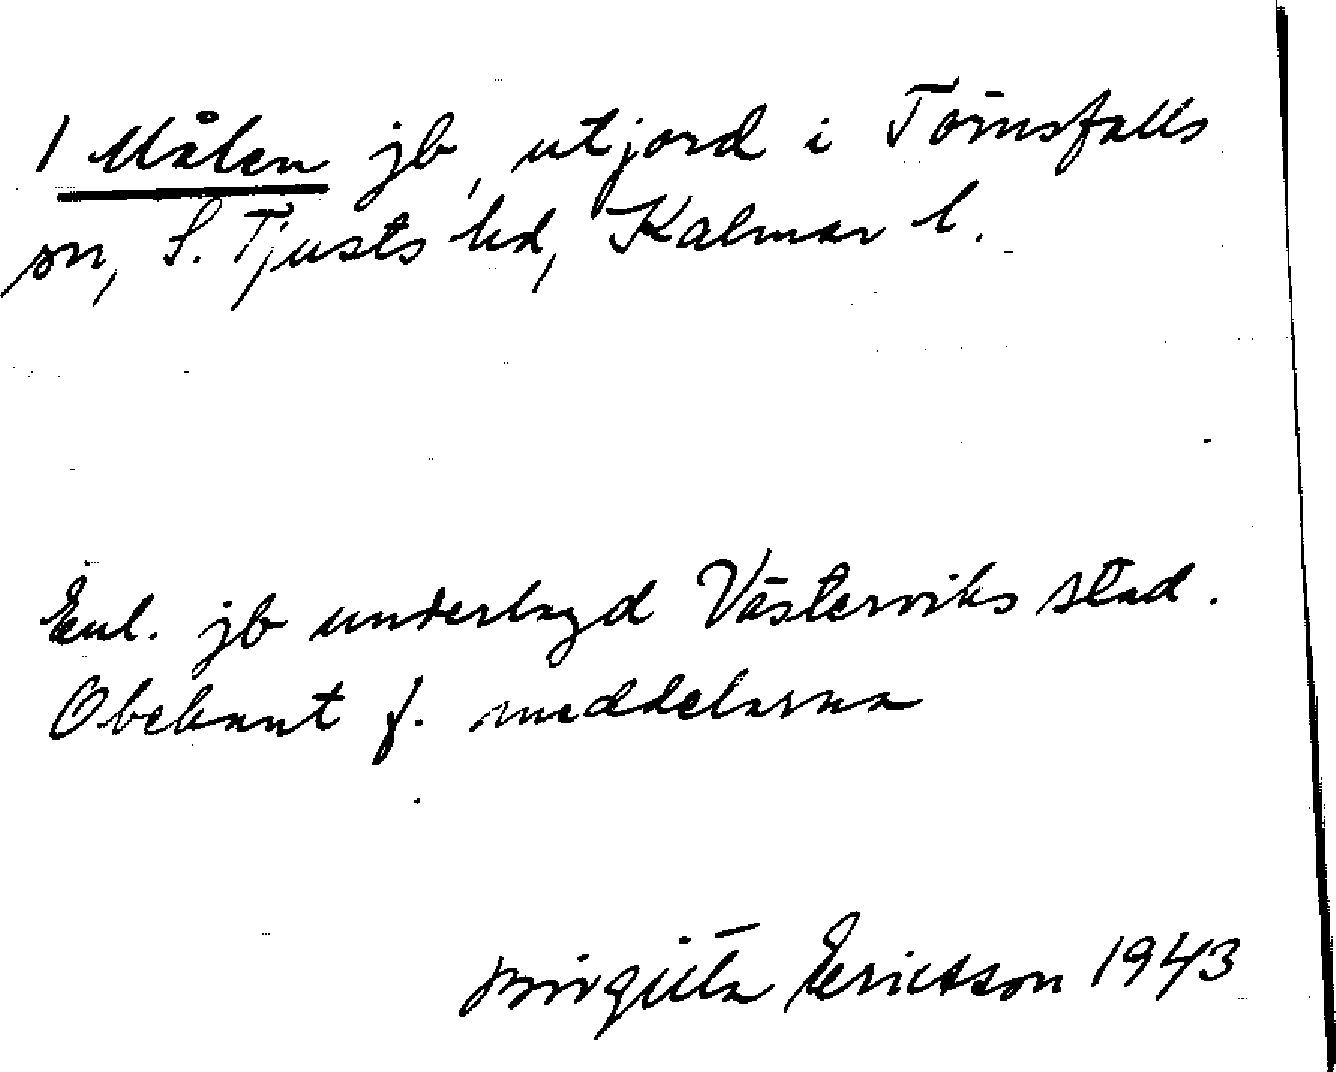 1 Målen jb, utjord i Törnsfalls
sn, S. Tjusts hd, Kalmar l.
Enl. jb underlagd Västerviks stad.
Obekant f. meddelarna
Birgitta Ericsson 1943